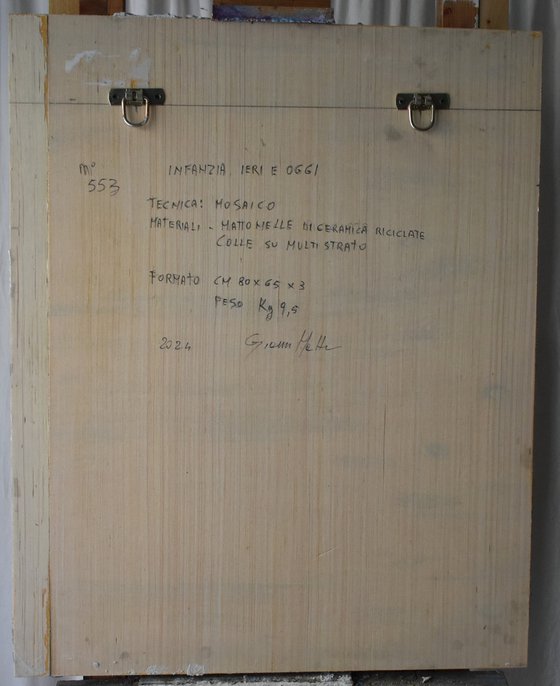 M° INFANZIA, IERI E OGGI
553
TECNICA: MOSAICO
MATERIALI - MATTONELLE DI CERAMICA RICICLATE
COLLE SU MULTISTRATO
FORMATO CM 80 x 65 x 3
PESO Kg 9,5
2024